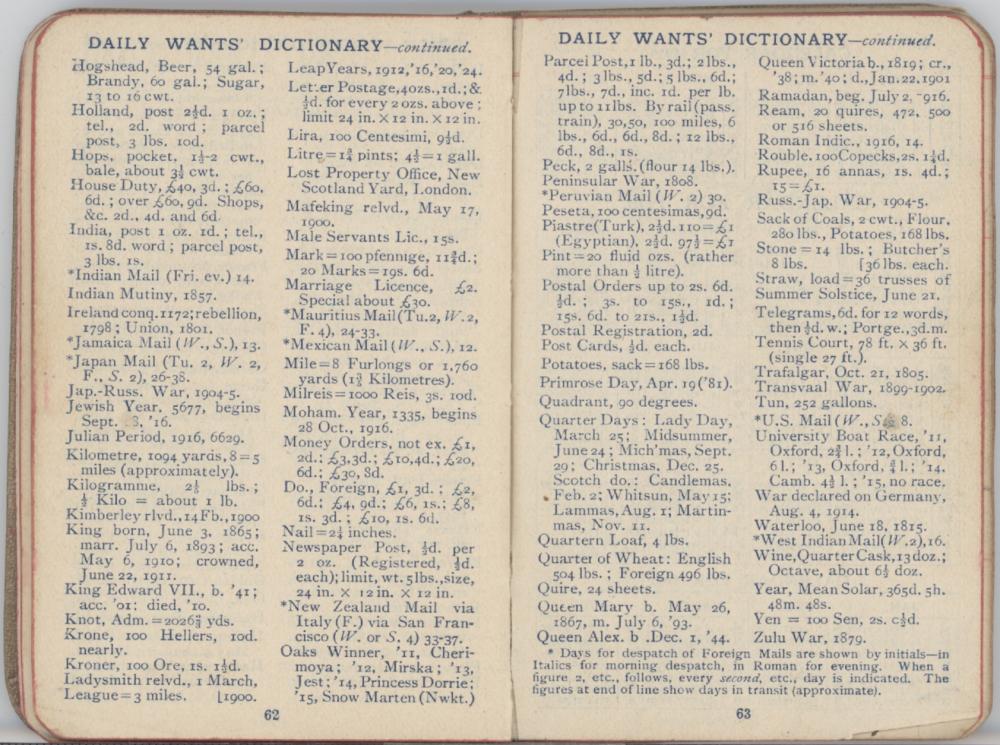 DAILY WANTS' DICTIONARY—continued.
Hogshead, Beer, 54 gal.;
Brandy, 60 gal.; Sugar,
13 to 16 cwt.
Holland, post 2½d. 1 oz.;
tel., 2d. word; parcel
post, 3 lbs. 10d.
Hops, pocket, 1½-2 cwt.,
bale, about 3¼ cwt.
House Duty, £40, 3d.; £60,
6d.; over £60, 9d. Shops,
&c. 2d., 4d. and 6d.
India, post 1 oz. 1d.; tel.,
1s. 8d. word; parcel post,
3 lbs. 1s.
*Indian Mail (Fri. ev.) 14.
Indian Mutiny, 1857.
Ireland conq. 1172; rebellion,
1798; Union, 1801.
*Jamaica Mail (W., S.), 13.
*Japan Mail (Tu. 2, W. 2,
F., S. 2), 26-38.
Jap.-Russ. War, 1904-5.
Jewish Year, 5677, begins
Sept. 28, '16.
Julian Period, 1916, 6629.
Kilometre, 1094 yards, 8=5
miles (approximately).
Kilogramme, 2¼ lbs.;
½ Kilo = about 1 lb.
Kimberley rlvd., 14 Fb., 1900
King born, June 3, 1865;
marr. July 6, 1893; acc.
May 6, 1910; crowned,
June 22, 1911.
King Edward VII., b. '41;
acc. '01; died, '10.
Knot, Adm.=2026⅔ yds.
Krone, 100 Hellers, 10d.
nearly.
Kroner, 100 Ore, 1s. 1½d.
Ladysmith relvd., 1 March,
League=3 miles. [1900.
62
Leap Years, 1912, '16, '20, '24.
Letter Postage, 4ozs., 1d.; &
½d. for every 2 ozs. above;
limit 24 in. X 12 in. X 12 in.
Lira, 100 Centesimi, 9½d.
Litre=1¾ pints; 4½=1 gall.
Lost Property Office, New
Scotland Yard, London.
Mafeking relvd., May 17,
1900.
Male Servants Lic., 15s.
Mark=100 pfennige, 11¾d.;
20 Marks=19s. 6d.
Marriage Licence, £2.
Special about £30.
*Mauritius Mail (Tu.2, W.2,
F. 4), 24-33.
*Mexican Mail (W., S.), 12.
Mile=8 Furlongs or 1,760
yards (1⅗ Kilometres).
Milreis=1000 Reis, 3s. 10d.
Moham. Year, 1335, begins
28 Oct., 1916.
Money Orders, not ex. £1,
2d.; £3, 3d.; £10, 4d.; £20,
6d.; £30, 8d.
Do., Foreign, £1, 3d.; £2,
6d.; £4, 9d.; £6, 1s.; £8,
1s. 3d.; £10, 1s. 6d.
Nail=2¼ inches.
Newspaper Post, ½d. per
2 oz. (Registered, ½d.
each); limit, wt. 5lbs., size,
24 in. X 12 in. X 12 in.
*New Zealand Mail via
Italy (F.) via San Fran-
cisco (W. or S. 4) 33-37.
Oaks Winner, '11, Cheri-
moya; '12, Mirska; '13,
Jest; '14, Princess Dorrie;
'15, Snow Marten (Nwkt.)
DAILY WANTS' DICTIONARY—continued.
Parcel Post, 1 lb., 3d.; 2 lbs.,
4d.; 3 lbs., 5d.; 5 lbs., 6d.;
7 lbs., 7d., inc. 1d. per lb.
up to 11lbs. By rail (pass.
train), 30, 50, 100 miles, 6
lbs., 6d., 6d., 8d.; 12 lbs.,
6d., 8d., 1s.
Peck, 2 galls. (flour 14 lbs.).
Peninsular War, 1808.
*Peruvian Mail (W. 2) 30.
Peseta, 100 centesimas, 9d.
Piastre (Turk), 2½d. 110=£1
(Egyptian), 2½d. 97½=£1
Pint=20 fluid ozs. (rather
more than ½ litre).
Postal Orders up to 2s. 6d.
½d.; 3s. to 15s., 1d.;
15s. 6d. to 21s., 1½d.
Postal Registration, 2d.
Post Cards, ½d. each.
Potatoes, sack=168 lbs.
Primrose Day, Apr. 19 ('81).
Quadrant, 90 degrees.
Quarter Days: Lady Day,
March 25; Midsummer,
June 24; Mich'mas, Sept.
29; Christmas, Dec. 25.
Scotch do.: Candlemas,
Feb. 2; Whitsun, May 15;
Lammas, Aug. 1; Martin-
mas, Nov. 11.
Quartern Loaf, 4 lbs.
Quarter of Wheat: English
504 lbs.; Foreign 496 lbs.
Quire, 24 sheets.
Queen Mary b. May 26,
1867, m. July 6, '93.
Queen Alex. b. Dec. 1, '44.
Queen Victoria b., 1819; cr.,
'38; m. '40; d., Jan. 22, 1901
Ramadan, beg. July 2, 916.
Ream, 20 quires, 472, 500
or 516 sheets.
Roman Indic., 1916, 14.
Rouble. 100 Copecks, 2s. 1¼d.
Rupee, 16 annas, 1s. 4d.;
15=£1.
Russ.-Jap. War, 1904-5.
Sack of Coals, 2 cwt., Flour,
280 lbs., Potatoes, 168 lbs.
Stone=14 lbs.; Butcher's
8 lbs. [36 lbs. each.
Straw, load=36 trusses of
Summer Solstice, June 21.
Telegrams, 6d. for 12 words,
then ½d. w.; Portge., 3d. m.
Tennis Court, 78 ft. X 36 ft.
(single 27 ft.).
Trafalgar, Oct. 21, 1805.
Transvaal War, 1899-1902.
Tun, 252 gallons.
*U.S. Mail (W., S. 8.
University Boat Race, '11,
Oxford, 2¾ l.; '12, Oxford,
6 l.; '13, Oxford, ¾ l.; '14.
Camb. 4½ l.; '15, no race.
War declared on Germany,
Aug. 4, 1914.
Waterloo, June 18, 1815.
*West Indian Mail (W.2), 16.
Wine, Quarter Cask, 13 doz.;
Octave, about 6½ doz.
Year, Mean Solar, 365d. 5h.
48m. 48s.
Yen = 100 Sen, 2s. 0½d.
Zulu War, 1879.
* Days for despatch of Foreign Mails are shown by initials—in
Italics for morning despatch, in Roman for evening. When a
figure 2, etc., follows, every second, etc., day is indicated. The
figures at end of line show days in transit (approximate).
63